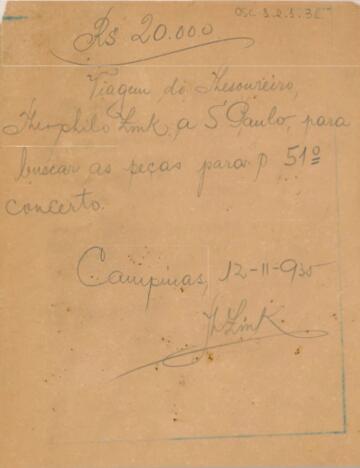 OSC-1.2.1.35
Rs 20.000
Viagem do Thesoureiro,
Theophilo Link, a S Paulo, para
buscar as peças para o 51º
concerto.
Campinas, 12-11-935
Th Link